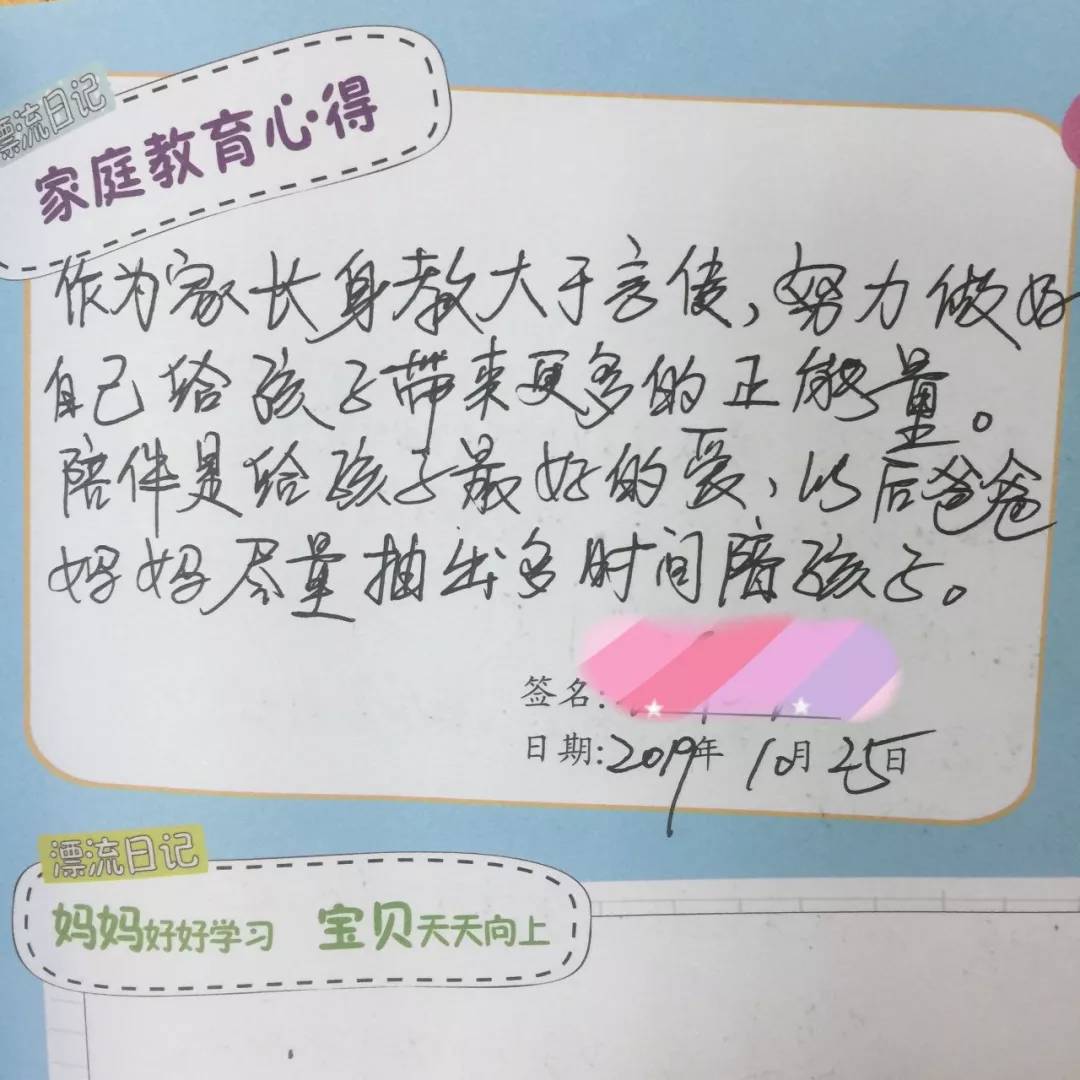 漂流日记
家庭教育心得
作为家长身教大于言传,努力做好
自己给孩子带来更多的正能量。
陪伴是给孩子最好的爱,以后爸爸
妈妈尽量抽出多时间陪孩子。
签名:
日期:2019年10月25日
漂流日记
妈妈好好学习 宝贝天天向上